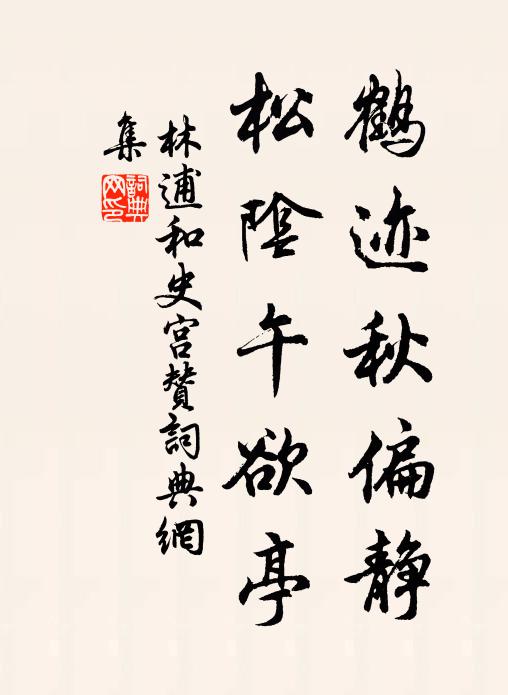 鹤迹秋偏静
松陰午欲亭
林逋和史宫赞詞典網
集
詞典網印